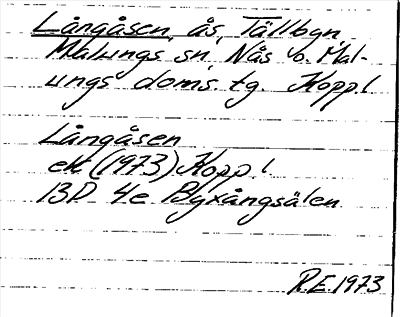 Långåsen, ås, Tällbgn,
Malungs sn, Nås o. Mal-
ungs doms. tg. Kopp. l
Långåsen
ek (1973) Kopp. l
13D 4e Byxångsälen
R.E. 1973